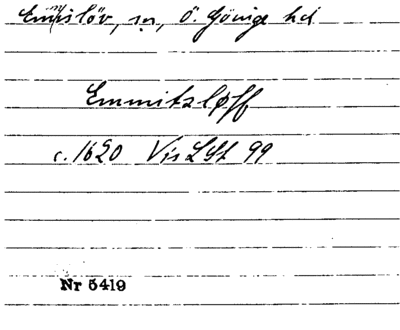 Emmislöv, sn, Ö. Göinge hd
Emmitzløff
c. 1620 Vis LSt 99
Nr 5419